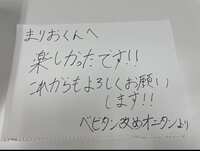 まりおくんへ
楽しかったです!!
これからもよろしくお願い
します!!
ベビタン改めオニタンより